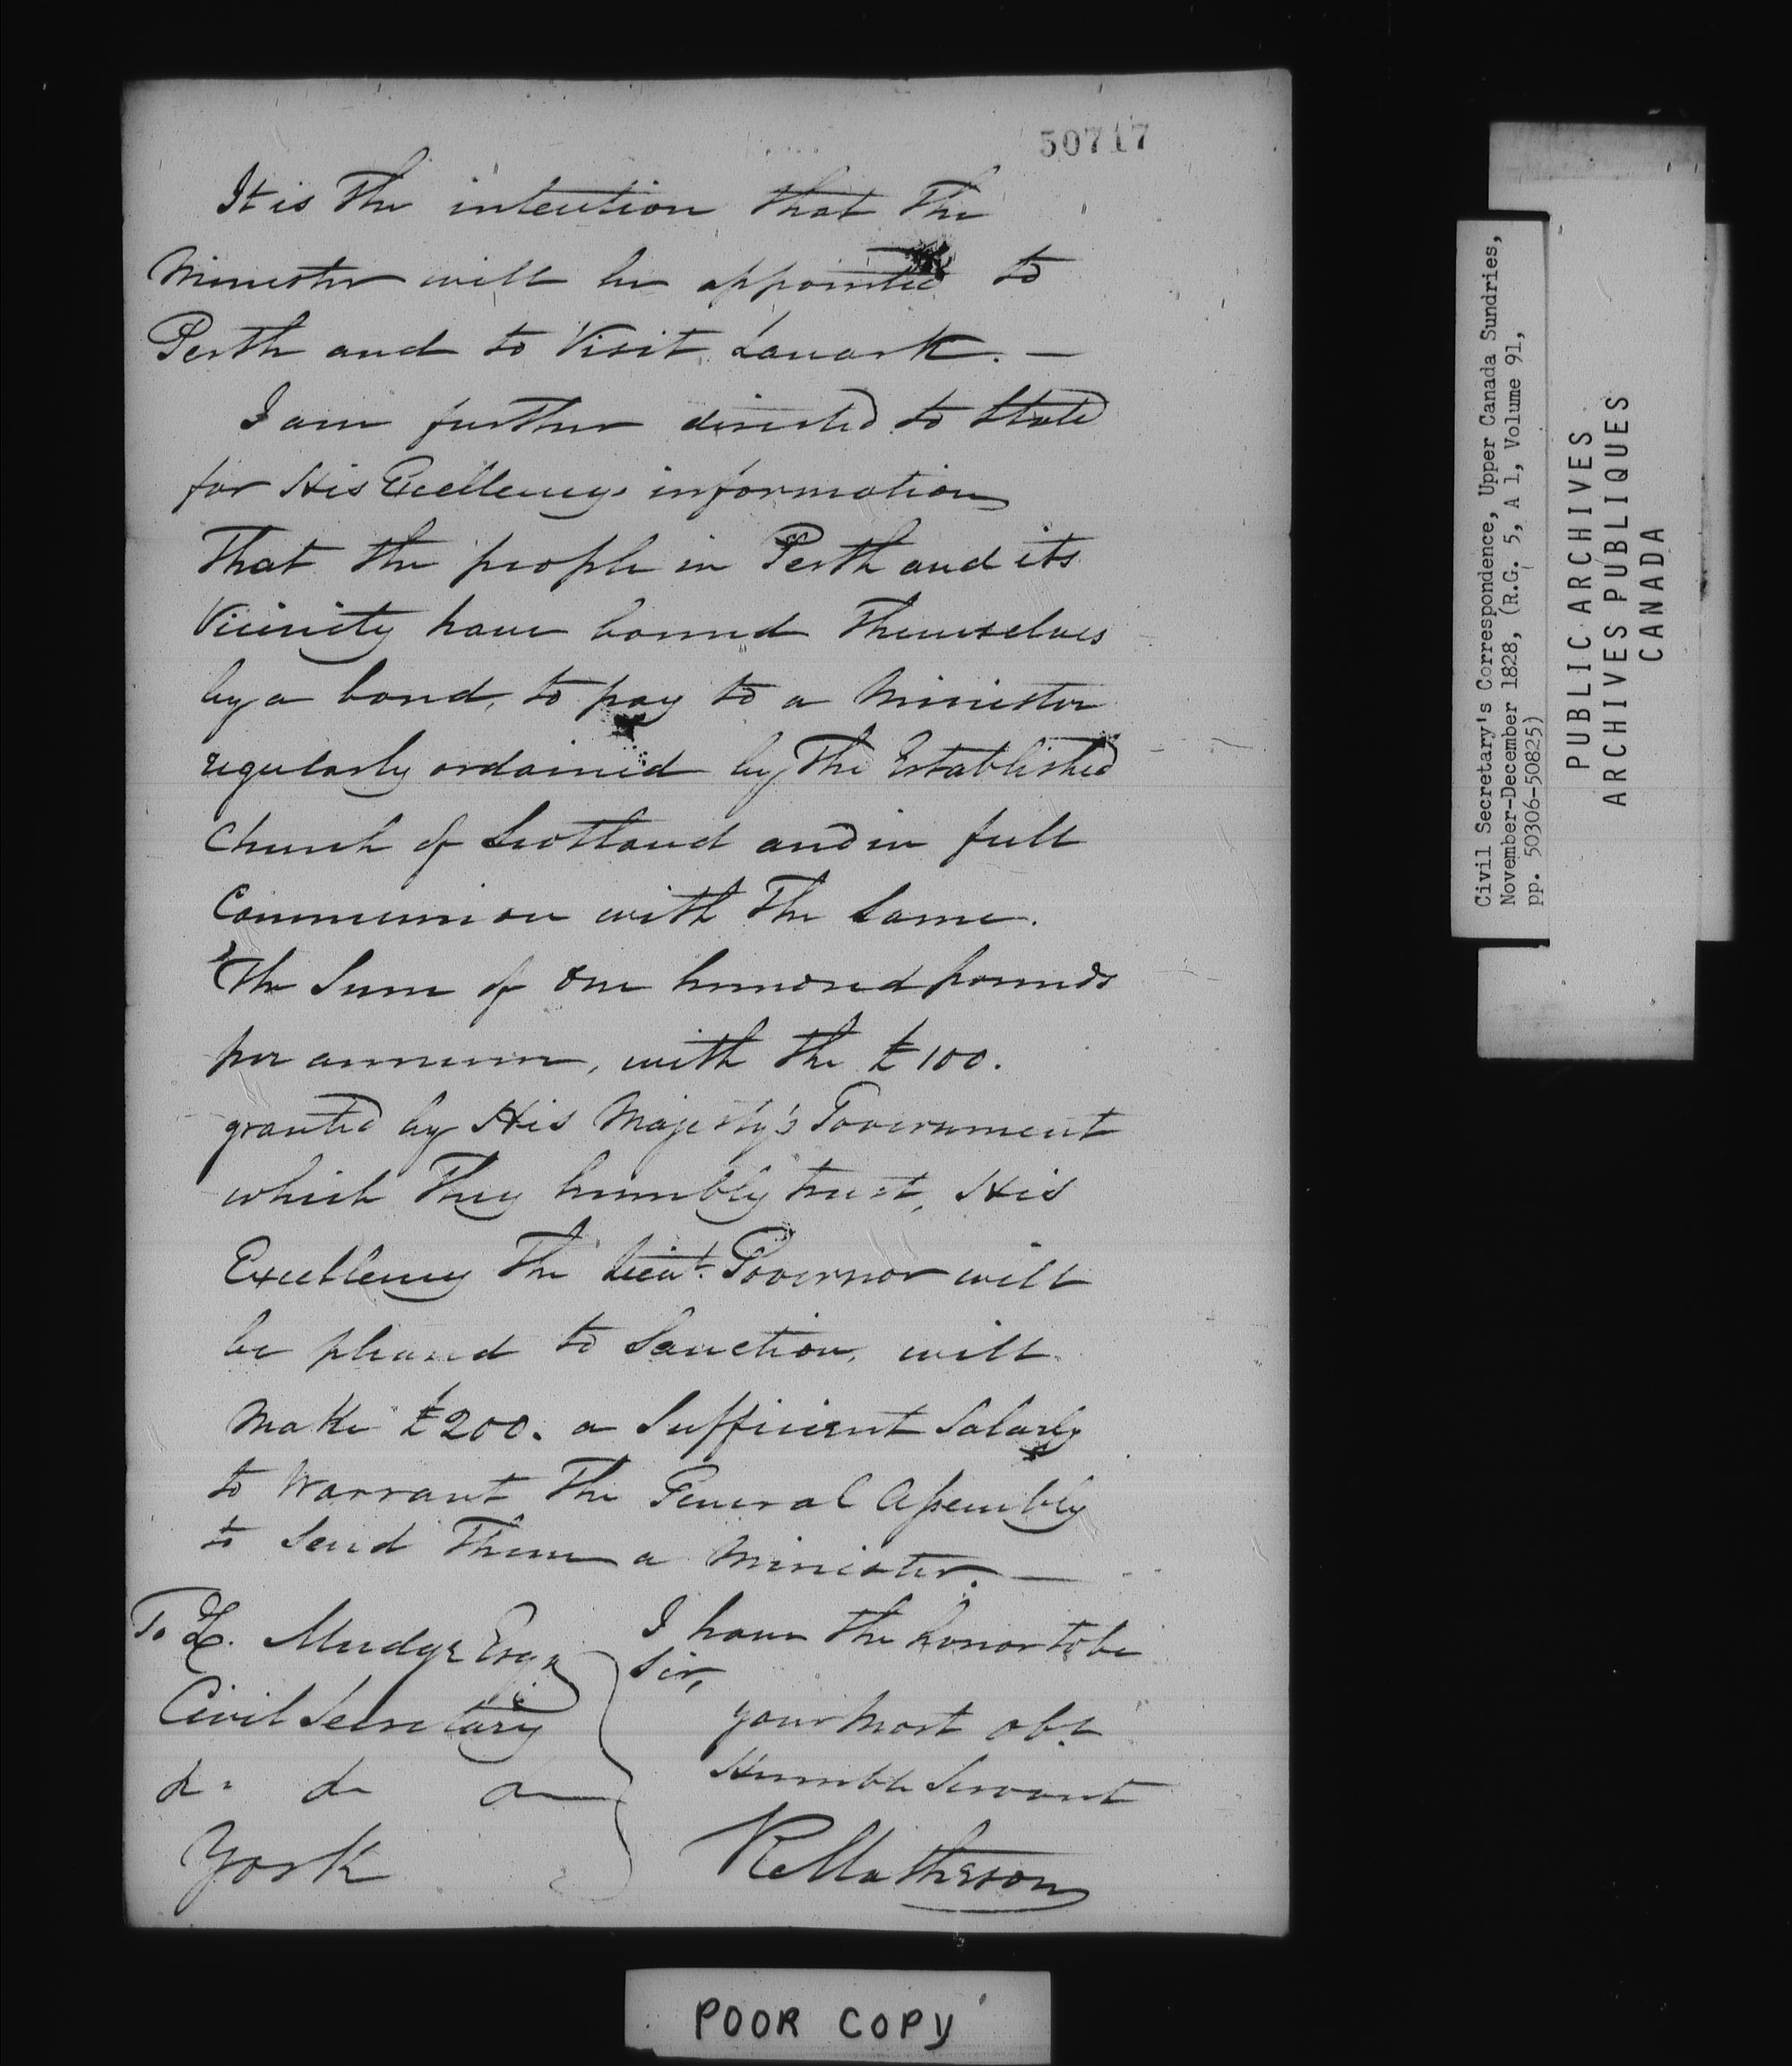 50717
It is The intention that The
Minister will be appointed to
Perth and to Visit Lanark. —
I am further directed to State
for His Excellency's information
That the people in Perth and its
Vicinity have bound Themselves
by a bond, to pay to a Minister
regularly ordained by The Established
Church of Scotland and in full
Communion with The Same.
The Sum of One hundred pounds
per annum, with the £100.
granted by His Majesty's Government
which They humbly trust, His
Excellency The Lieut. Governor will
be pleased to Sanction, will
make £200. a Sufficient Salary
to Warrant The General Assembly
to Send Them a Minister. —
I have the honor to be
Sir,
your most obt.
Humble Servant
R Matheson
To Z. Mudge Esqr
Civil Secretary
&c &c &c
York
POOR COPY
Civil Secretary's Correspondence, Upper Canada Sundries,
November-December 1828, (R.G. 5, A 1, Volume 91,
pp. 50306-50825)
PUBLIC ARCHIVES
ARCHIVES PUBLIQUES
CANADA